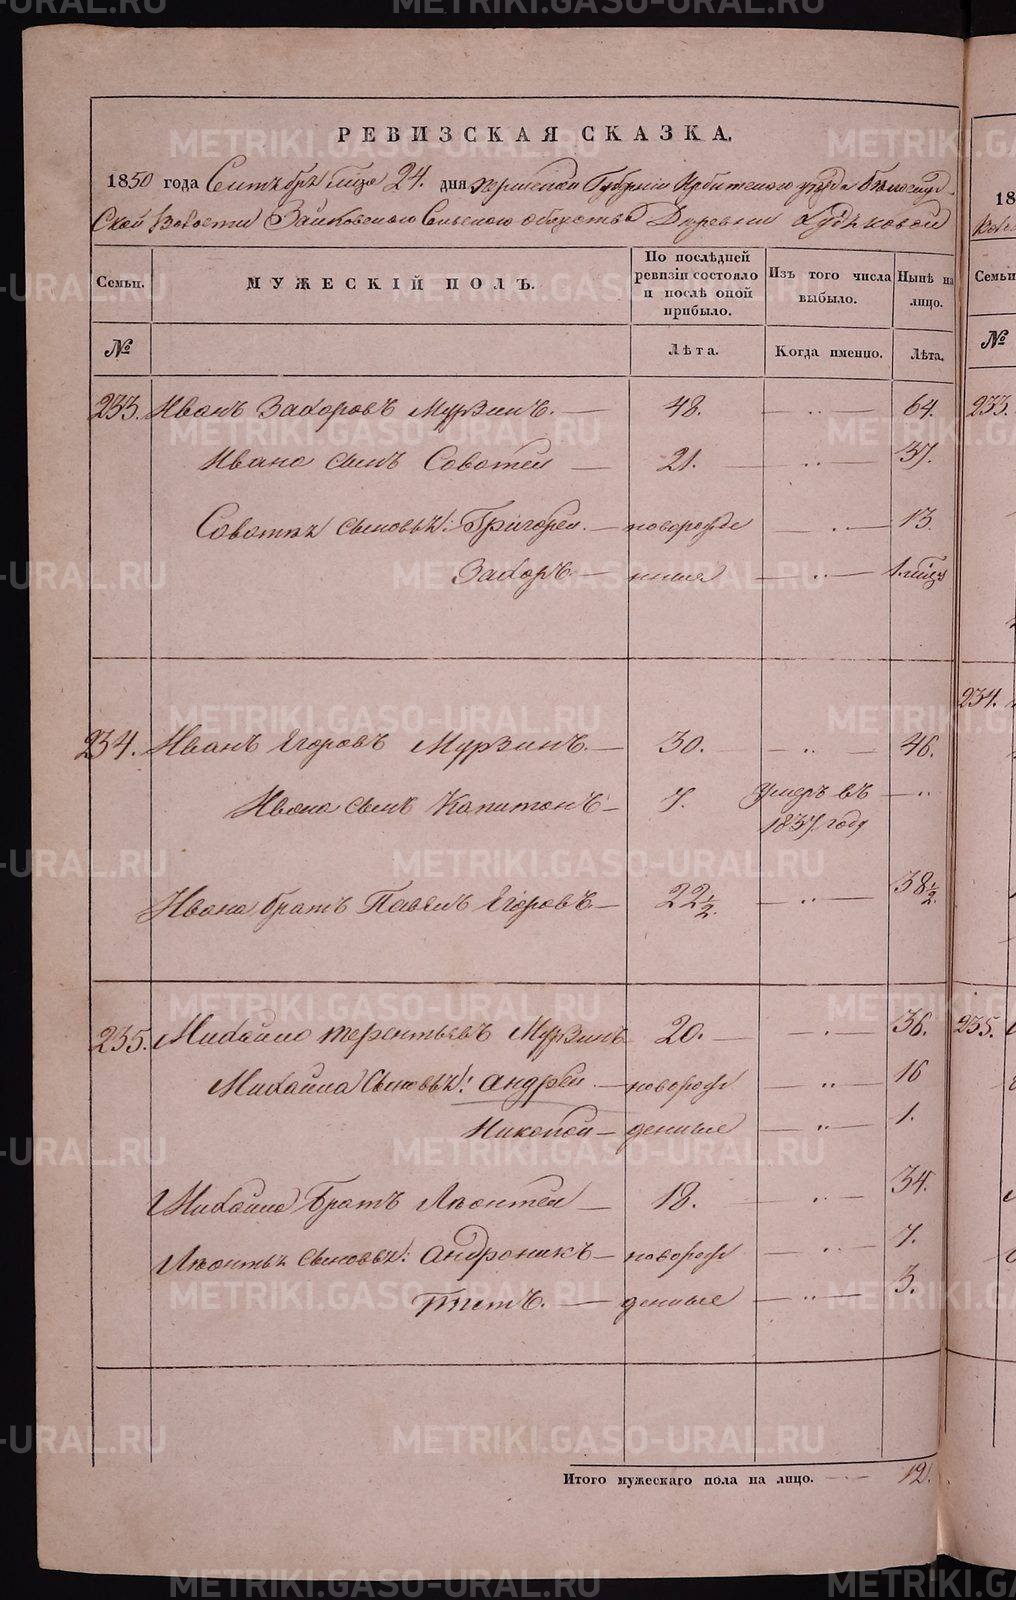 РЕВИЗСКАЯ СКАЗКА.
1850 года Сентября м-ца 24. дня Пермской Губерніи Ирбитского уезда Белослуд-
ской Волости Зайковского Сельского общества Деревни
Семьи. МУЖЕСКІЙ ПОЛЪ. По послѣдней ревизіи состояло и послѣ оной прибыло. Изъ того числа выбыло. Нынѣ на лицо.
№ Лѣта. Когда именно. Лѣта.
233. Иванъ Захоровъ Мурзинъ. — 48. — „ — 64.
Ивана сынъ Совотей — 21. — „ — 37.
Совотѣя сыновья: Григорей — новорожде — „ — 13.
Захоръ — нные — „ — 1. мѣсяц
234. Иванъ Егоровъ Мурзинъ. — 30. — „ — 46.
Ивана сынъ Капитонъ — 7. Умеръ въ 1837 году — „
Ивана братъ Павелъ Егоровъ — 22½. — „ — 38½.
235. Михайло Терентьевъ Мурзинъ 20. — „ — 36.
Михайла Сыновья: Андрей — новорож — „ — 16
Николай — денные — „ — 1.
Михайла Братъ Леонтей — 18. „ — 34.
Леонтья сыновья: Андроникъ — новорож — „ — 7.
Титъ. — денные — „ — 3.
Итого мужескаго пола на лицо. — 12.
18
Семьи
№
233.
234.
235.
METRIKI.GASO-URAL.RU